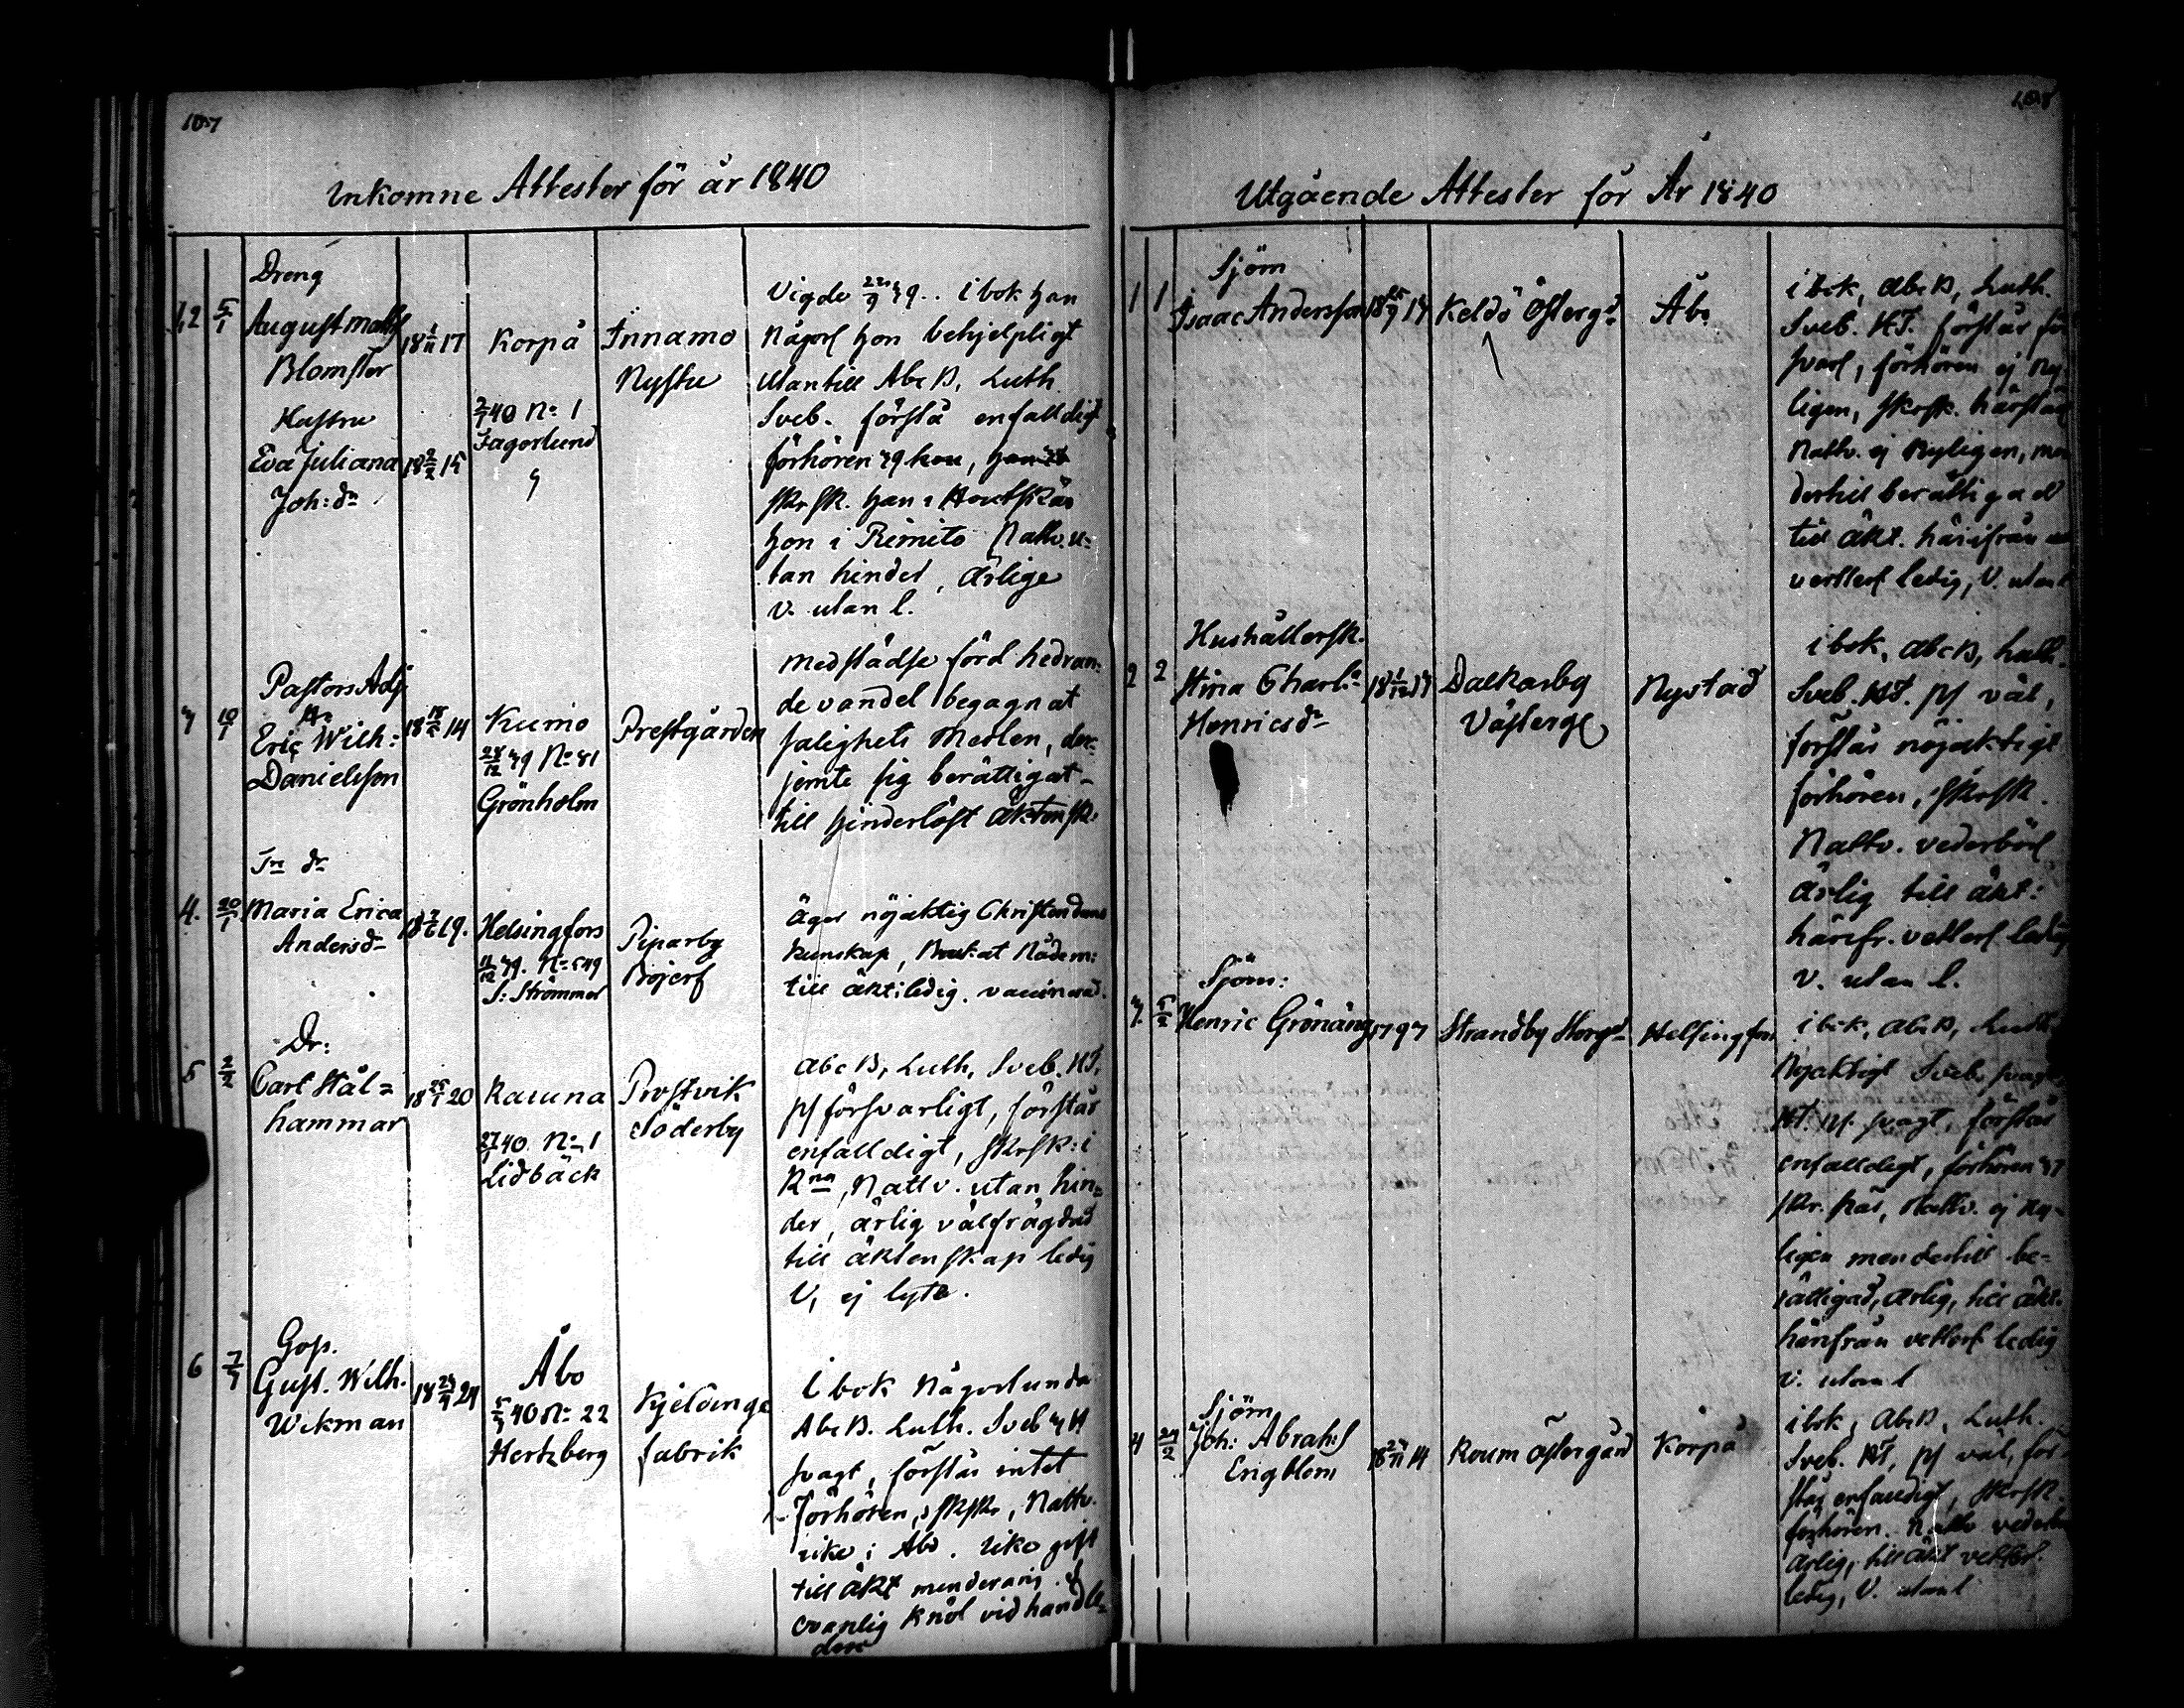 107
Inkomne Attester för år 1840
1,2 5/1 Dreng
August Matts
Blomster
18 1/11 17 Korpå Innamo
Nystu
Hustru
Eva Juliana
Joh: dr
18 2/2 15
2/1 40 No 1
Fagerlund
Vigde 22/9 39.. i bok han
Någorl hon behjelpligt
Utantill Abc B, Luth
Sveb. förstå enfalldigt
förhören 39
skrsk. han i Houtskär
hon i Rimito Nattv. u-
tan hinder, ärlige
v. utan l.
3 10/1 Pastors Adj.
Hr
Eric Wilh:
Danielsson
14 Kumo
28/12 39 No 81
Grönholm
Prestgården
medstädse förd hedran-
de vandel begagnat
salighets Medlen, der-
jemte sig berättigat
till hinderlöst äktensk.
4. 20/1 Maria Erica
Andersdr
19. Helsingfors
11/12 39. No 549
S: Strömmer
Piparby
Böjers
äger nöjaktig Christendoms
kunskap, Brukat Nådem:
till äkt: ledig. vaccinerad.
5 2/2 Dr:
Carl Stål=
hammar
18 25/1 20 Kauna
27/1 40. No 1
Lidbäck
Prostvik
Söderby
Abc B, Luth, Sveb. NT,
ps försvarligt, förstår
enfalldigt, skrsk: i
Kna, Nattv. utan hin=
der, ärlig välfrägdad
till äktenskap ledig
V, ej lyte.
6 Goss.
Gust. Wilh.
Wikman
Åbo
No 22
Hertzberg
Kjeldinge
fabrik
i bok Någorlunda
Abc B. Luth. Sveb
svagt, förstår intet
Förhören, skrsk, Nattv.
icke i Åbo. icke gift
till äkt menderårig.
ovanlig knöl vid handle=
den
108
Utgående Attester för År 1840
1 1 Sjöm
Isaac Andersson
Keldö Österg:d
Åbo
i bok, Abc B, Luth.
Sveb. NT. förstår för
svarl, förhören ej ny
ligen, skrsk. härstäd
Nattv. ej Nyligen, men
dertill berättigad
till äkt. härifrån
vetterl ledig, V. utan l
2 2 Hushållersk.
Stina Charl:a
Henricsdr
Dalkarby
Västerg
Nystad
i bok, Abc B, Luth.
Sveb. NT. ps väl,
förstår nöjaktigt
förhören, skrsk.
Nattv. vederbörl
ärlig till äkt:
härifr. vetterl ledig
v. utan l.
3. 5/2 Sjöm:
Henric Grönäng
1797 Strandby Storgd Helsingfors
i bok, Abc B, Luth
Nöjaktigt Sveb, svagt,
NT. ps. svagt, förstår
enfalldigt, förhören 37
skr. här, Nattv. ej ny-
ligen men dertill be-
rättigad, ärlig, till äkt.
härifrån vetterl ledig
v. utan l
4 24/2 Sjöm
Joh: Abrah:s
Engblom
14 Roum östergård Korpå
i bok, Abc B, Luth.
Sveb. NT, ps väl, för-
står enfaldigt, skrsk.
förhören. Nattv vederbör
ärlig, till äkt vetterl.
ledig, V. utan l